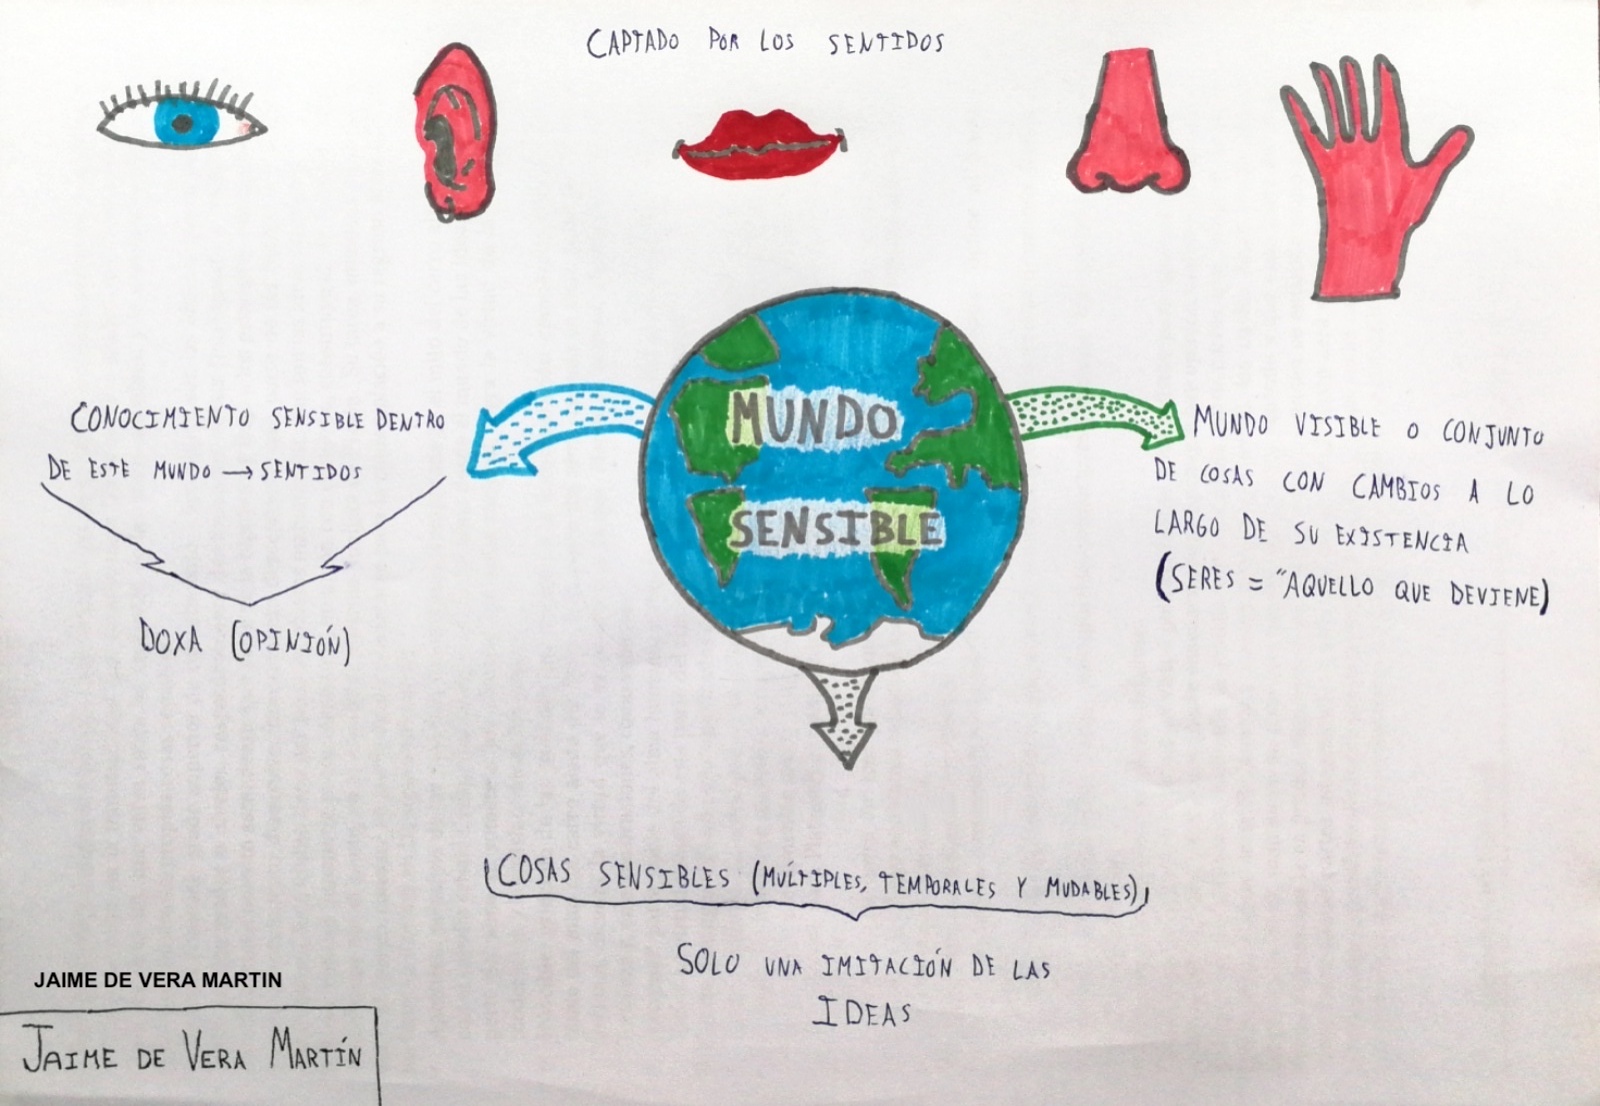 CAPTADO POR LOS SENTIDOS
MUNDO
SENSIBLE
CONOCIMIENTO SENSIBLE DENTRO
DE ESTE MUNDO → SENTIDOS
DOXA (OPINIÓN)
MUNDO VISIBLE O CONJUNTO
DE COSAS CON CAMBIOS A LO
LARGO DE SU EXISTENCIA
(SERES = "AQUELLO QUE DEVIENE)
COSAS SENSIBLES (MÚLTIPLES, TEMPORALES Y MUDABLES)
SOLO UNA IMITACIÓN DE LAS
IDEAS
JAIME DE VERA MARTIN
JAIME DE VERA MARTÍN